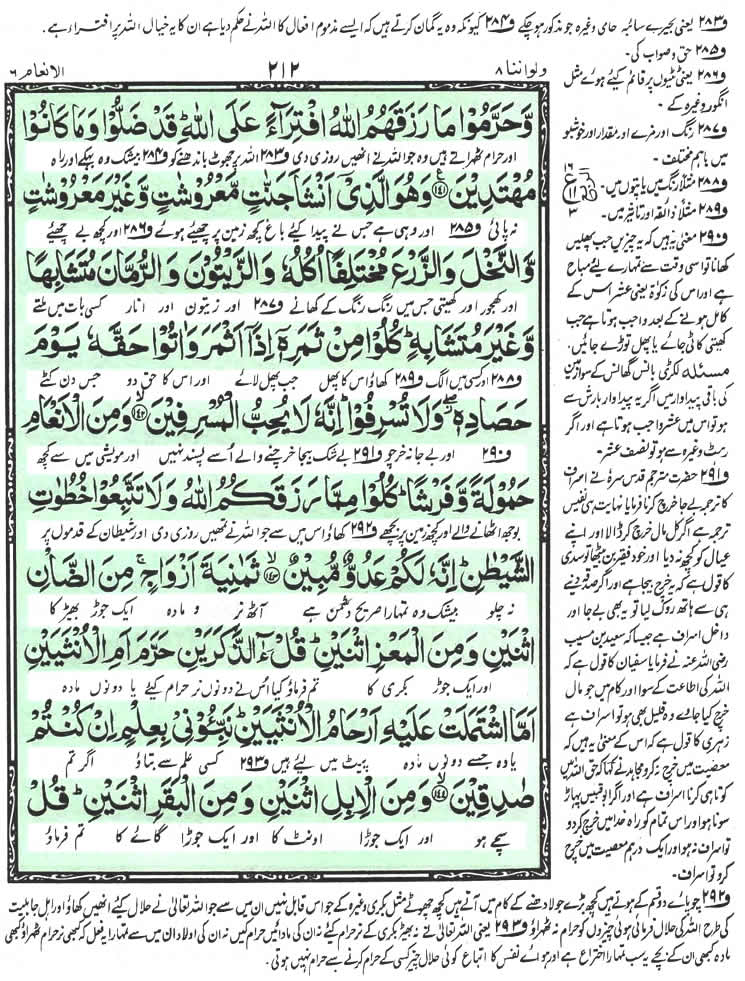 ف۲۸۳ یعنی بحیرے سائبہ حامی وغیرہ جو مذکور ہو چکے ف۲۸۴ کیونکہ وہ یہ گمان کرتے ہیں کہ ایسے مذموم افعال کا اللہ نے حکم دیا ہے ان کا یہ خیال اللہ پر افتراء ہے۔
ف۲۸۵ حق و صواب کی۔
ف۲۸۶ یعنی ٹٹیوں پر قائم کیئے ہوئے مثل
انگور وغیرہ کے۔
ف۲۸۷ رنگ اور مزے اور مقدار اور خوشبو
میں باہم مختلف۔
ف۲۸۸ مثلاً رنگ میں یا پتوں میں۔
ف۲۸۹ مثلاً ذائقہ اور تاثیر میں۔
ف۲۹۰ معنی یہ ہیں کہ یہ چیزیں جب پھلیں
کھانا تو اسی وقت سے تمہارے لیئے مباح
ہے اور اس کی زکوٰۃ یعنی عشر اس کے
کامل ہونے کے بعد واجب ہوتا ہے جب
کھیتی کاٹی جائے یا پھل توڑے جائیں۔
مسئلہ لکڑی بانس گھانس کے سوا زمین
کی باقی پیداوار میں اگر یہ پیداوار بارش سے
ہو تو اس میں عشر واجب ہوتا ہے اور اگر
رہٹ وغیرہ سے ہو تو نصف عشر۔
ف۲۹۱ حضرت مترجم قدس سرہ نے اسراف
کا ترجمہ بے جا خرچ کرنا فرمایا نہایت ہی نفیس
ترجمہ ہے اگر کل مال خرچ کر ڈالا اور اپنے
عیال کو کچھ نہ دیا اور خود فقیر بن بیٹھا تو سدی
کا قول ہے کہ یہ خرچ بیجا ہے اور اگر صدقہ دینے
ہی سے ہاتھ روک لیا تو یہ بھی بے جا اور
داخل اسراف ہے جیسا کہ سعید بن مسیب
رضی اللہ عنہ نے فرمایا سفیان کا قول ہے کہ
اللہ کی اطاعت کے سوا اور کام میں جو مال
خرچ کیا جاوے وہ قلیل بھی ہو تو اسراف ہے
زہری کا قول ہے کہ اس کے معنی یہ ہیں کہ
معصیت میں خرچ نہ کرو مجاہد نے کہا کہ حق اللہ میں
کوتاہی کرنا اسراف ہے اور اگر ابوقبیس پہاڑ
سونا ہو اور اس تمام کو راہ خدا میں خرچ کر دو
تو اسراف نہ ہو اور ایک درہم معصیت میں خرچ
کرو تو اسراف۔
ولو اننا ۸
۲۱۲
الانعام ۶
وَّحَرَّمُوْا مَا رَزَقَهُمُ اللّٰهُ افْتِرَآءً عَلَى اللّٰهِ ؕ قَدْ ضَلُّوْا وَمَا كَانُوْا
اور حرام ٹھہراتے ہیں وہ جو اللہ نے انھیں روزی دی ف۲۸۳ اللہ پر جھوٹ باندھنے کو ف۲۸۴ بیشک وہ بہکے اور راہ
مُهْتَدِيْنَ ﴿۱۴۱﴾ وَهُوَ الَّذِيْۤ اَنْشَاَ جَنّٰتٍ مَّعْرُوْشٰتٍ وَّغَيْرَ مَعْرُوْشٰتٍ
نہ پائی ف۲۸۵ اور وہی ہے جس نے پیدا کیئے باغ کچھ زمین پر چھئے ہوئے ف۲۸۶ اور کچھ بے چھئے
وَّالنَّخْلَ وَالزَّرْعَ مُخْتَلِفًا اُكُلُهٗ وَالزَّيْتُوْنَ وَالرُّمَّانَ مُتَشَابِهًا
اور کھجور اور کھیتی جس میں رنگ رنگ کے کھانے ف۲۸۷ اور زیتون اور انار کسی بات میں ملتے
وَّغَيْرَ مُتَشَابِهٍ ؕ كُلُوْا مِنْ ثَمَرِهٖۤ اِذَاۤ اَثْمَرَ وَاٰتُوْا حَقَّهٗ يَوْمَ
ف۲۸۸ اور کسی میں الگ ف۲۸۹ کھاؤ اس کا پھل جب پھل لائے اور اس کا حق دو جس دن کٹے
حَصَادِهٖ ۖ وَلَا تُسْرِفُوْا ؕ اِنَّهٗ لَا يُحِبُّ الْمُسْرِفِيْنَ ﴿۱۴۲﴾ وَمِنَ الْاَنْعَامِ
ف۲۹۰ اور بے جا نہ خرچو ف۲۹۱ بے شک بیجا خرچنے والے اُسے پسند نہیں اور مویشی میں سے کچھ
حَمُوْلَةً وَّفَرْشًا ؕ كُلُوْا مِمَّا رَزَقَكُمُ اللّٰهُ وَلَا تَتَّبِعُوْا خُطُوٰتِ
بوجھ اٹھانے والے اور کچھ زمین پر بچھے ف۲۹۲ کھاؤ اس میں سے جو اللہ نے تمھیں روزی دی اور شیطان کے قدموں پر
الشَّيْطٰنِ ؕ اِنَّهٗ لَكُمْ عَدُوٌّ مُّبِيْنٌ ﴿۱۴۳﴾ ثَمٰنِيَةَ اَزْوَاجٍ ۚ مِنَ الضَّاْنِ
نہ چلو بیشک وہ تمہارا صریح دشمن ہے آٹھ نر و مادہ ایک جوڑ بھیڑ کا
اثْنَيْنِ وَمِنَ الْمَعْزِ اثْنَيْنِ ؕ قُلْ ءٰٓالذَّكَرَيْنِ حَرَّمَ اَمِ الْاُنْثَيَيْنِ
اور ایک جوڑ بکری کا تم فرماؤ کیا اُس نے دونوں نر حرام کیئے یا دونوں مادہ
اَمَّا اشْتَمَلَتْ عَلَيْهِ اَرْحَامُ الْاُنْثَيَيْنِ ؕ نَبِّـُٔوْنِيْ بِعِلْمٍ اِنْ كُنْتُمْ
یا وہ جسے دونوں مادہ پیٹ میں لیئے ہیں ف۲۹۳ کسی علم سے بتاؤ اگر تم
صٰدِقِيْنَ ﴿۱۴۴﴾ وَمِنَ الْاِبِلِ اثْنَيْنِ وَمِنَ الْبَقَرِ اثْنَيْنِ ؕ قُلْ
سچے ہو اور ایک جوڑا اونٹ کا اور ایک جوڑا گائے کا تم فرماؤ
ف۲۹۲ چوپائے دو قسم کے ہوتے ہیں کچھ بڑے جو لادنے کے کام میں آتے ہیں کچھ چھوٹے مثل بکری وغیرہ کے جو اس قابل نہیں ان میں سے جو اللہ تعالیٰ نے حلال کیئے انھیں کھاؤ اور اہل جاہلیت
کی طرح اللہ کی حلال فرمائی ہوئی چیزوں کو حرام نہ ٹھہراؤ ف۲۹۳ یعنی اللہ تعالیٰ نے نہ بھیڑ بکری کے نر حرام کیئے نہ ان کی مادائیں حرام کیں نہ ان کی اولاد ان میں سے تمہارا یہ فعل کہ کبھی نر حرام ٹھہراؤ کبھی
مادہ کبھی ان کے بچے یہ سب تمہارا اختراع ہے اور ہوائے نفس کا اتباع کوئی حلال چیز کسی کے حرام کرنے سے حرام نہیں ہوتی۔